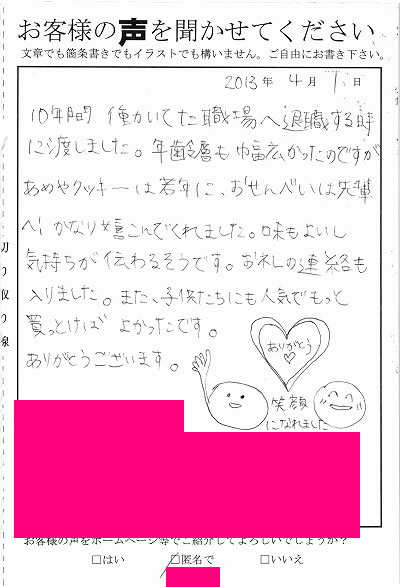 お客様の声を聞かせてください
文章でも箇条書きでもイラストでも構いません。ご自由にお書き下さい。
2013年 4月 1日
10年間 働いてた職場へ退職する時
に渡しました。年齢層も巾広かったのですが
あめやクッキーは若年に、おせんべいは先輩
へ! かなり嬉こんでくれました。味もよいし
気持ちが伝わるそうです。お礼の連絡も
入りました。また、子供たちにも人気でもっと
買っとけば よかったです。
ありがとうございます。
ありがとう
笑顔
になれました
お客様の声をホームページ等でご紹介してよろしいでしょうか?
□はい □匿名で □いいえ